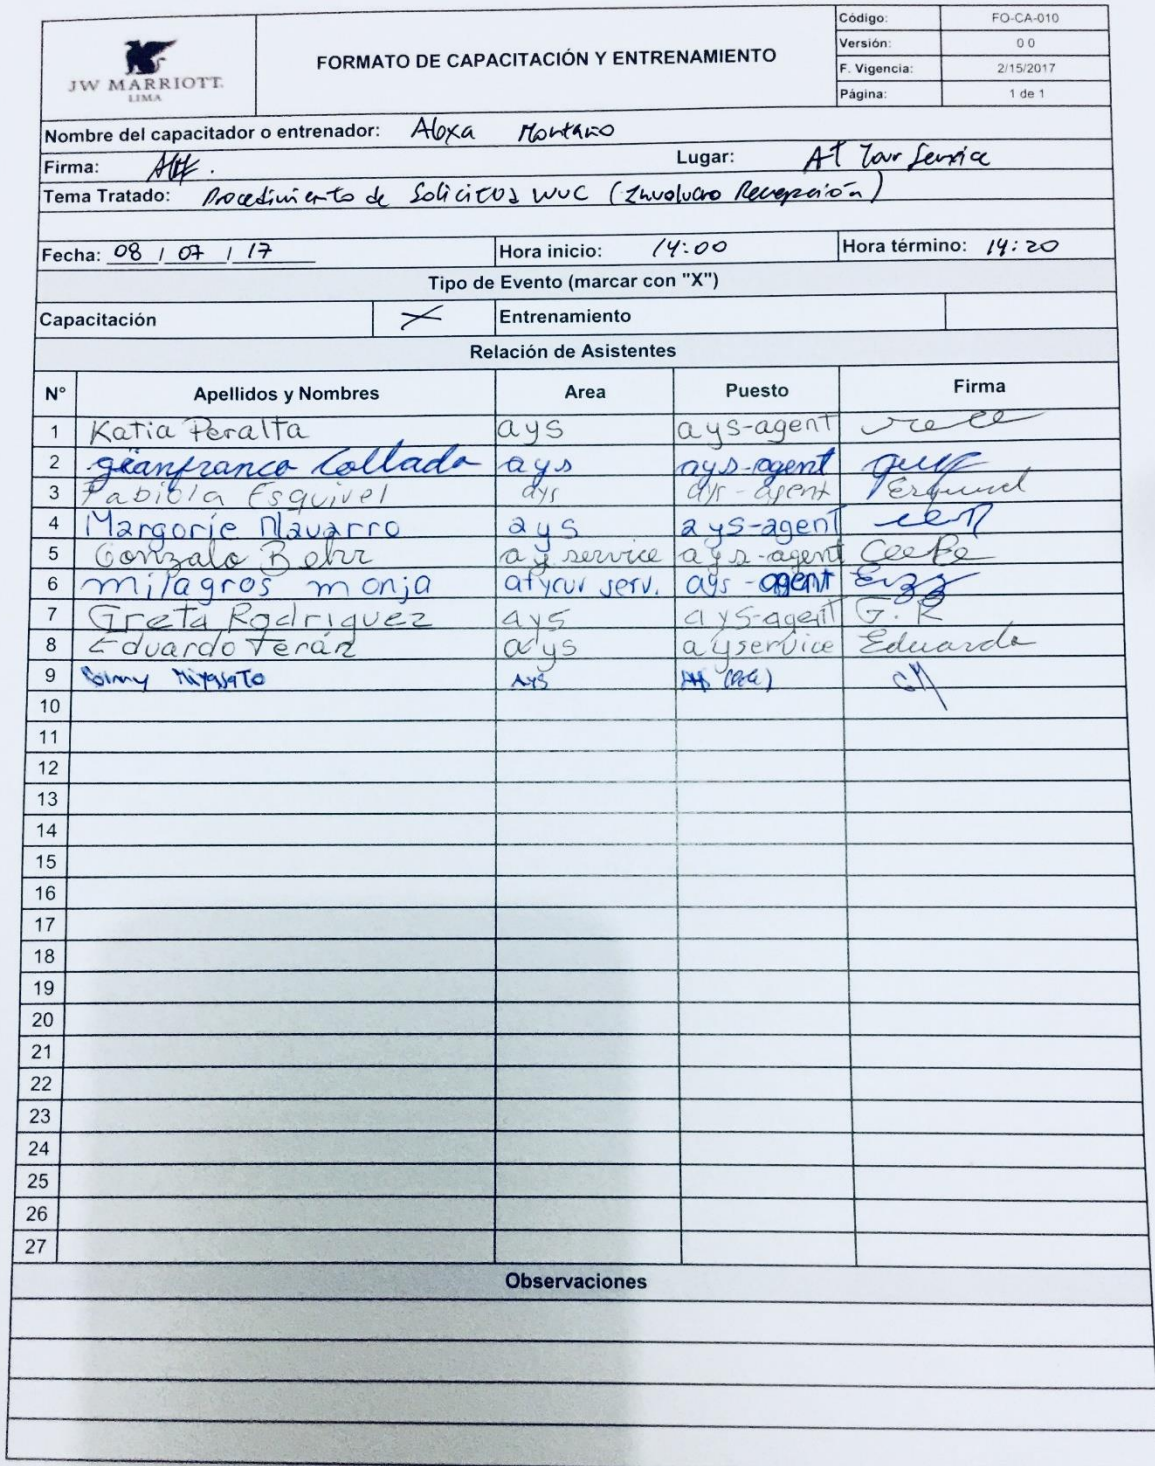 JW MARRIOTT
LIMA
FORMATO DE CAPACITACIÓN Y ENTRENAMIENTO
Código: FO-CA-010
Versión: 0 0
F. Vigencia: 2/15/2017
Página: 1 de 1
Nombre del capacitador o entrenador: Alexa Montano
Firma: Lugar: At Your Service
Tema Tratado: Procedimiento de Solicitud WUC (Involucro Recepción)
Fecha: 08 / 07 / 17 Hora inicio: 14:00 Hora término: 14:20
Tipo de Evento (marcar con "X")
Capacitación X Entrenamiento
Relación de Asistentes
N° Apellidos y Nombres Area Puesto Firma
1 Katia Peralta ays ays-agent
2 gianfranco Collado ays ays-agent
3 Fabiola Esquivel ays ays-agent Esquivel
4 Margorie Navarro ays ays-agent
5 Gonzalo Behr ay service ays-agent
6 milagros monja atycur serv. ays-agent
7 Greta Rodriguez ays ays-agent G. R
8 Eduardo Terán ays ayservice Eduardo
9 Miyasato AYS
10
11
12
13
14
15
16
17
18
19
20
21
22
23
24
25
26
27
Observaciones